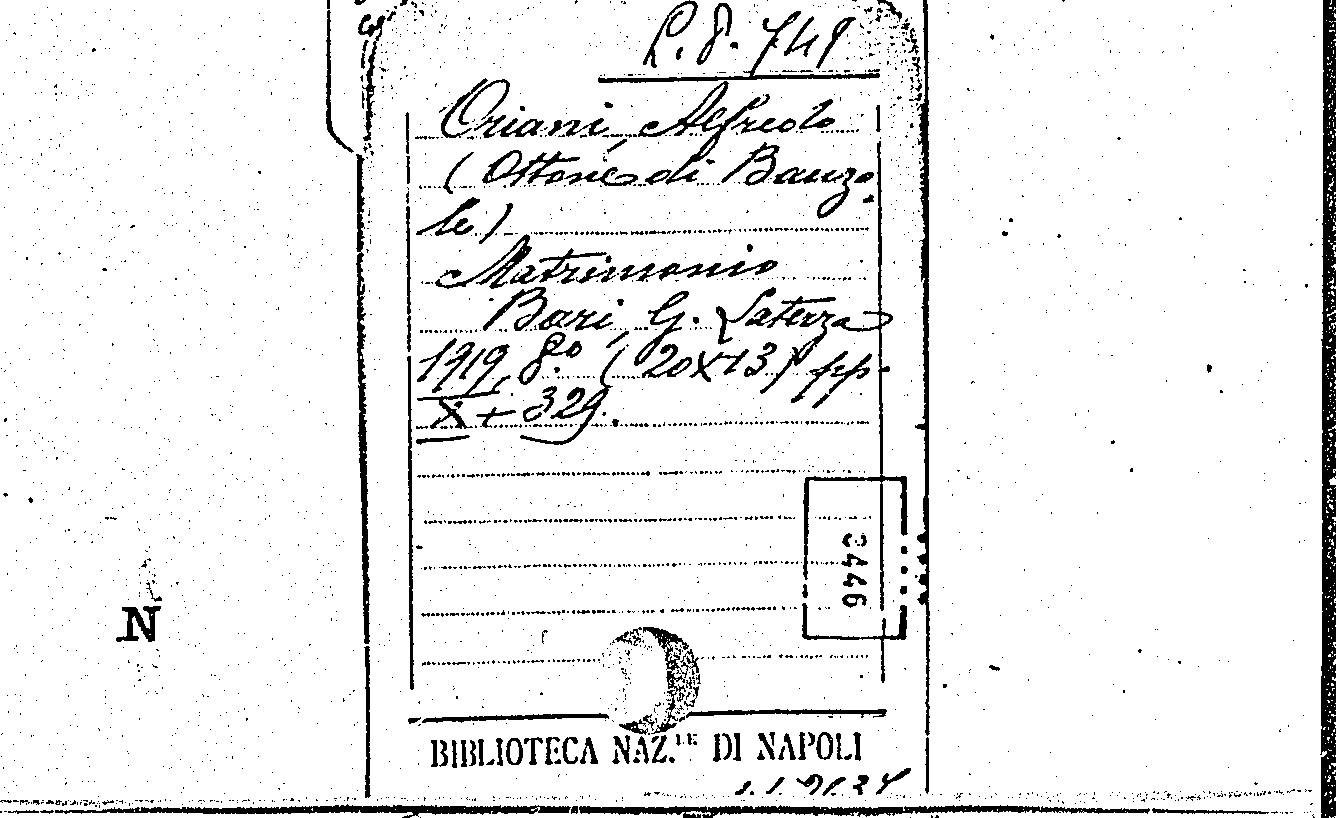 L. P. 749
Oriani, Alfredo
( Ottone di Banzo-
le)
Matrimonio
Bari, G. Laterza
1919, 8.º ( 20x13) pp.
X + 329.
3446
N
BIBLIOTECA NAZ.LE DI NAPOLI